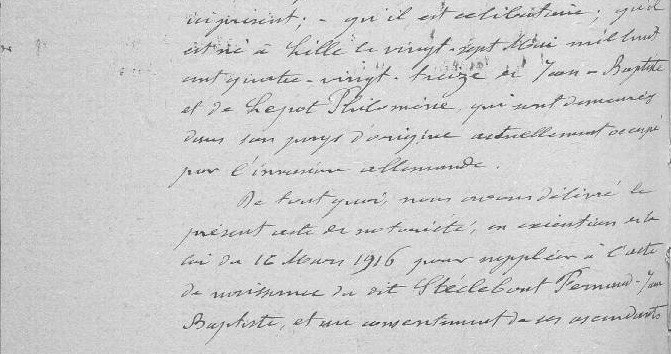 ici présent; - qu'il est célibataire; qu'il
est né à Lille le vingt-sept Mai mil huit
cent quatre-vingt-treize de Jean-Baptiste
et de Lepot Philomène, qui sont demeurés
dans son pays d'origine actuellement occupé
par l'invasion allemande.
De tout quoi, nous avons délivré le
présent acte de notoriété, en exécution de la
loi du 16 Mars 1916 pour suppléer à l'acte
de naissance du dit Fernand-Jean
Baptiste, et au consentement de ses ascendants